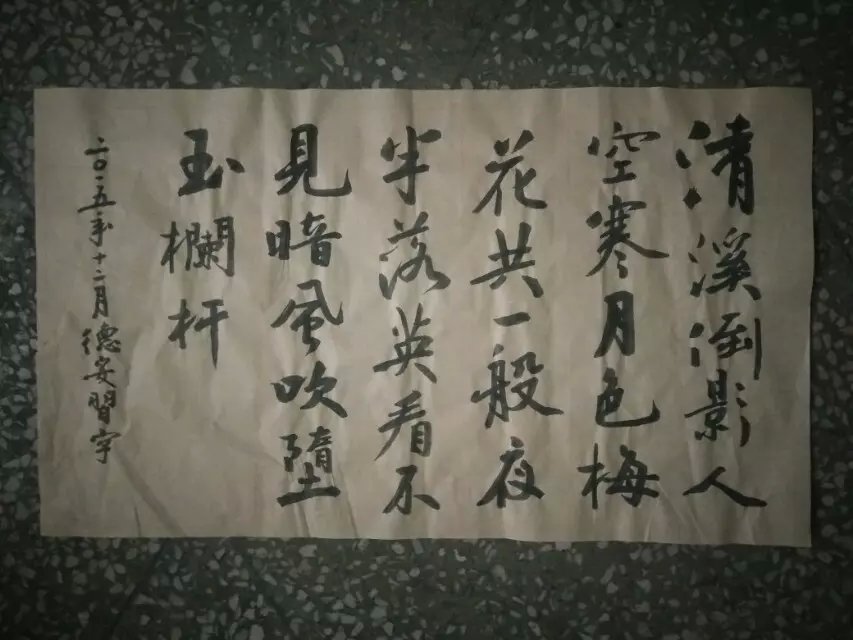 清溪倒影人
空寒月色梅
花共一般夜
半落英看不
見暗風吹墮
玉欄杆
二〇一五年十二月德安習字